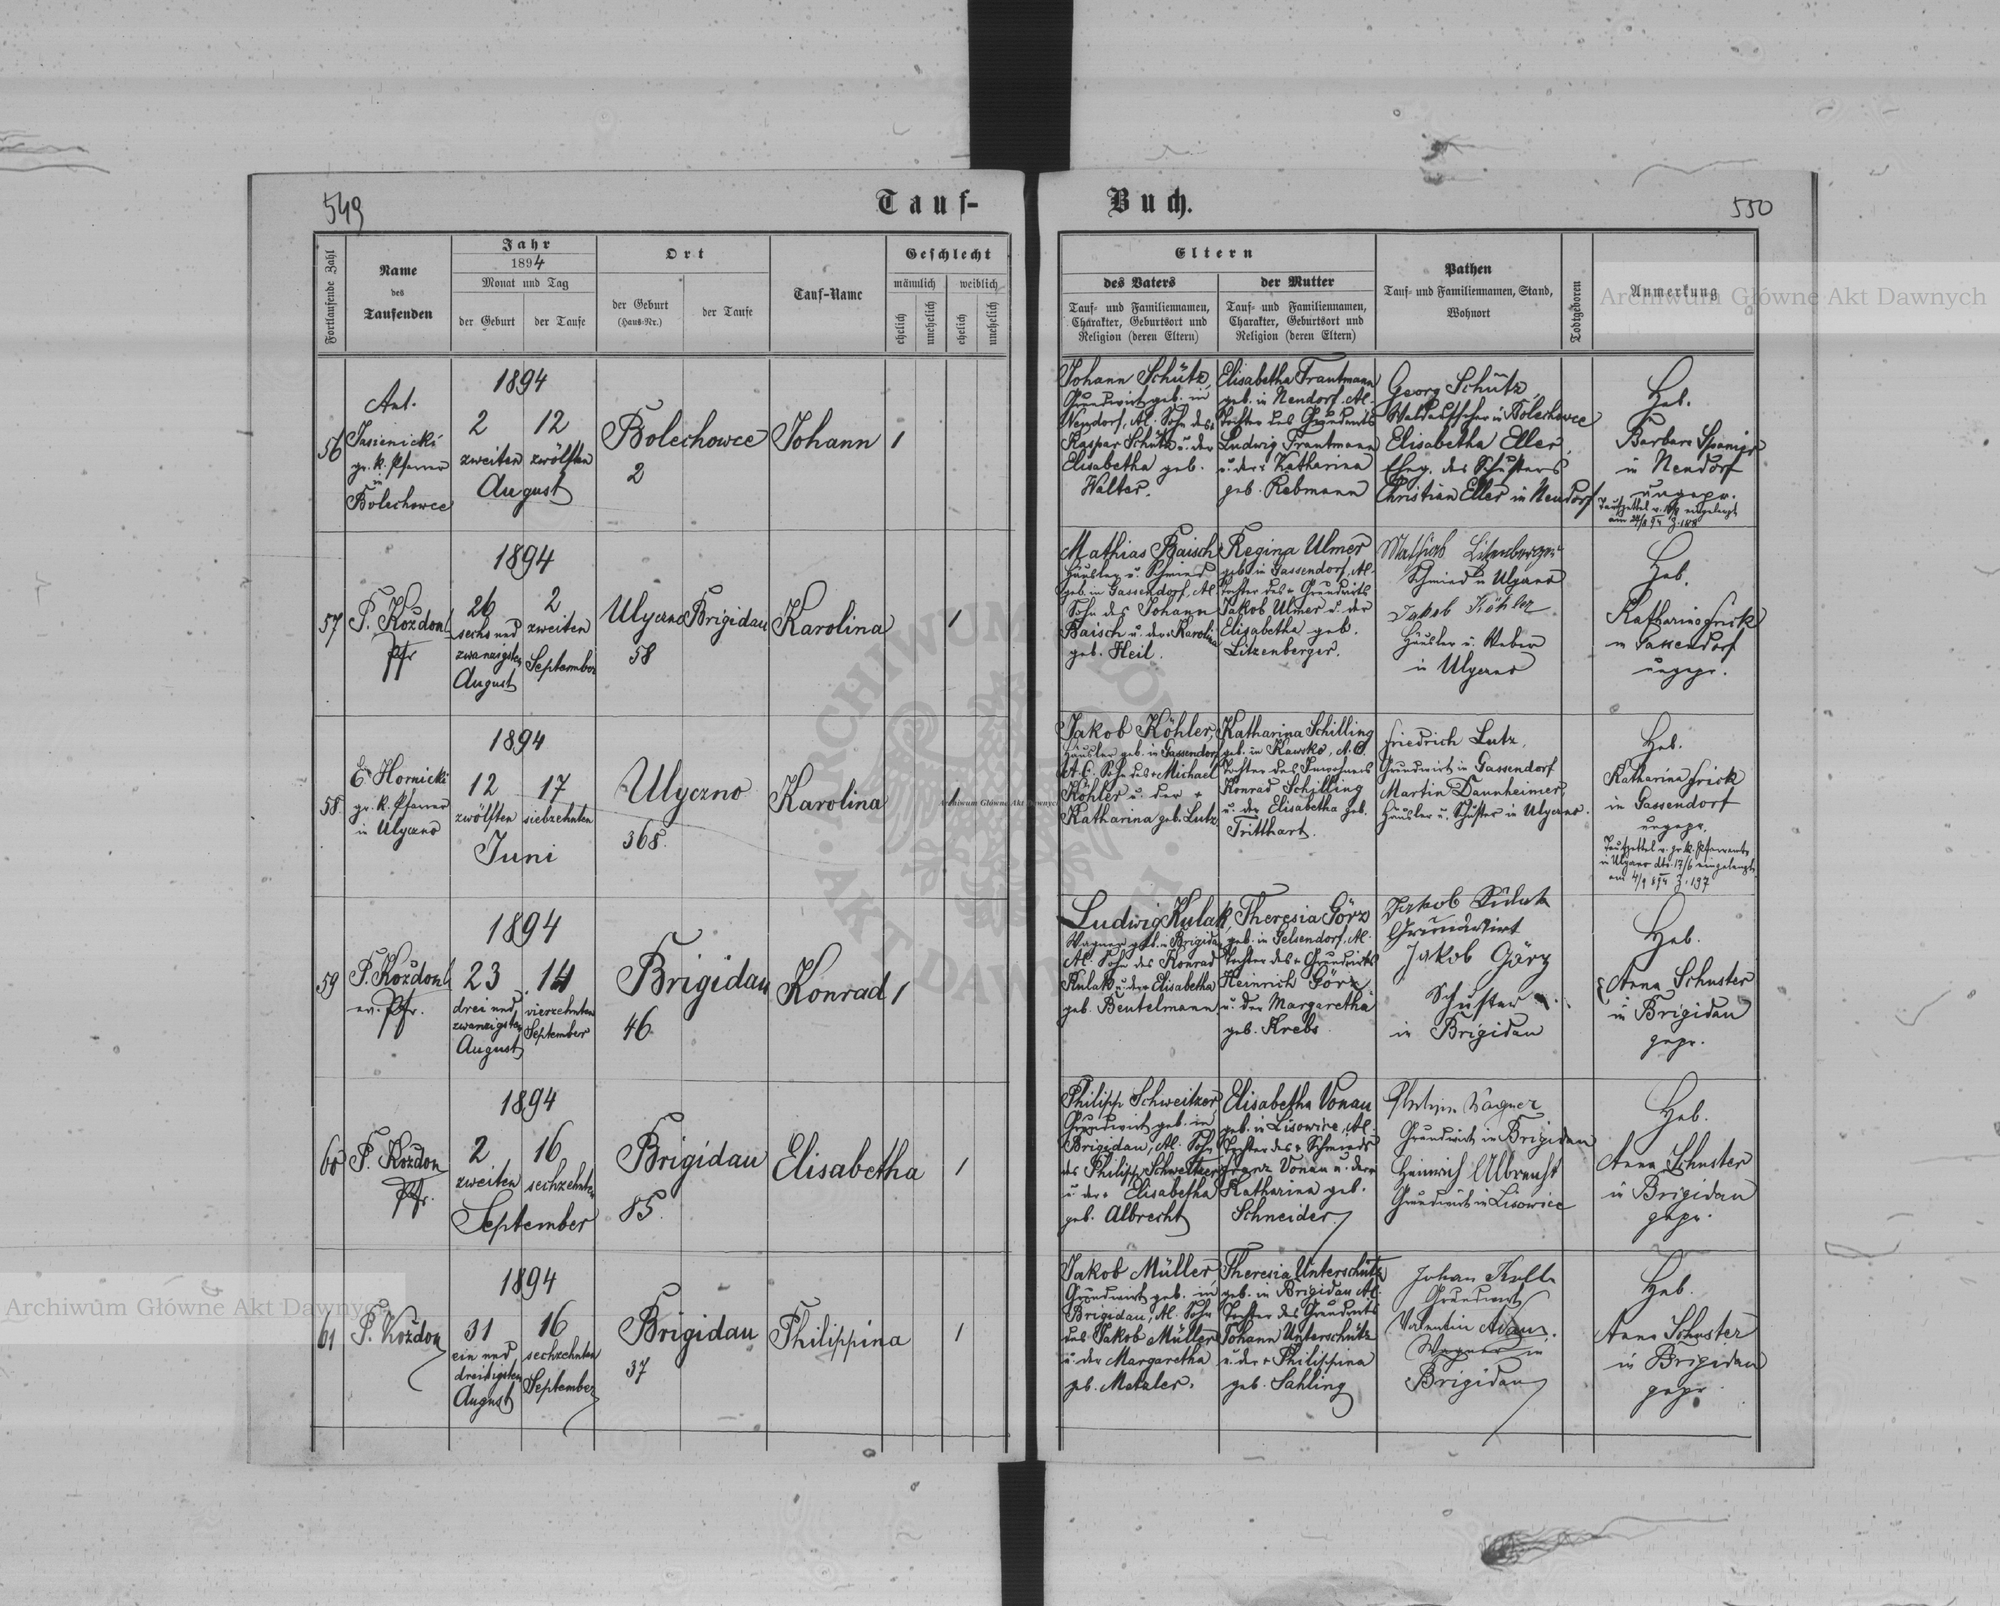 549
Tauf-
Buch.
550
Fortlaufende Zahl
Name
des
Taufenden
Jahr
1894
Monat und Tag
der Geburt
der Taufe
Ort
der Geburt
(Haus-Nr.)
der Taufe
Tauf-Name
Geschlecht
männlich
weiblich
ehelich
unehelich
ehelich
unehelich
Eltern
des Vaters
der Mutter
Tauf- und Familiennamen,
Charakter, Geburtsort und
Religion (deren Eltern)
Tauf- und Familiennamen,
Charakter, Geburtsort und
Religion (deren Eltern)
Pathen
Tauf- und Familiennamen, Stand,
Wohnort
Todtgeboren
Anmerkung
56
Ant.
Jasienicki
gr. k. Pfarrer
in
Bolechowce
1894
2 12
zweiten zwölften
August
Bolechowce
2
Johann
1
Johann Schütz,
Grundwirt geb. in
Neudorf, Al. Sohn des
Kaspar Schütz u. der
Elisabetha geb.
Walter.
Elisabetha Trautmann
geb. in Neudorf, Al.
Tochter des Grundwirts
Ludwig Trautmann
u. der Katharina
geb. Rebmann
Georg Schütz,
Waldaufseher in Bolechowce
Elisabetha Eller,
Eheg. des Schusters
Christian Eller in Neudorf
Heb.
Barbara
in Neudorf
ungepr.
57
P. Kozdon
Pfr
1894
26
sechs und
zwanzigsten
August
2
zweiten
September
Ulyczno
58
Brigidau
Karolina
1
Mathias Baisch
Häusler u. Schmied
geb. in Gassendorf, Al.
Sohn des Johann
Baisch u. der Karolina
geb. Heil.
Regina Ulmer
geb. in Gassendorf, Al.
Tochter des + Grundwirts
Jakob Ulmer u. der
Elisabetha geb.
Litzenberger.
Mathias Litzenberger
Schmied in Ulyczno
Jakob Köhler
Häusler u. Weber
in Ulyczno
Heb.
Katharina Frick
in Gassendorf
ungepr.
58
E. Hornicki
gr. k. Pfarrer
in Ulyczno
1894
12 17
zwölften siebzehnten
Juni
Ulyczno
368.
Karolina
1
Jakob Köhler,
Häusler geb. in Gassendorf
A. C. Sohn des + Michael
Köhler u. der +
Katharina geb. Lutz
Katharina Schilling
geb. in Kawsko, A. C.
Tochter des Inwohners
Konrad Schilling
u. der Elisabetha geb.
Tritthart.
Friedrich Lutz,
Grundwirt in Gassendorf
Martin Dannheimer,
Häusler u. Schuster in Ulyczno.
Heb.
Katharina Frick
in Gassendorf
ungepr.
Taufzettel v. gr. k. Pfarramte
in Ulyczno dto. 17/6 eingelangt
am 4/9 894 Z. 197
59
P. Kozdon
ev. Pfr.
1894
23
drei und
zwanzigsten
August
14
vierzehnten
September
Brigidau
46
Konrad
1
Ludwig Kulak,
Wagner geb. in Brigidau
Al. Sohn des Konrad
Kulak u. der Elisabetha
geb. Beutelmann
Theresia Görz
geb. in Gelsendorf, Al.
Tochter des + Grundwirts
Heinrich Görz
u. der Margaretha
geb. Krebs
Jakob Kulak
Grundwirt
Jakob Görz
Schuster
in Brigidau
Heb.
Anna Schuster
in Brigidau
gepr.
60
P. Kozdon
Pfr.
1894
2 16
zweiten sechzehnten
September
Brigidau
85.
Elisabetha
1
Philipp Schweitzer,
Grundwirt geb. in
Brigidau, Al. Sohn
des Philipp Schweitzer
u. der + Elisabetha
geb. Albrecht
Elisabetha Vonau
geb. in Lisowice, Al.
Tochter des + Schmieds
Franz Vonau u. der
Katharina geb.
Schneider.
Wagner
Grundwirt in Brigidau
Heinrich Albrecht
Grundwirt in Lisowice
Heb.
Anna Schuster
in Brigidau
gepr.
61
P. Kozdon
1894
31
ein und
dreißigsten
August
16
sechzehnten
September
Brigidau
37
Philippina
1
Jakob Müller,
Grundwirt geb. in
Brigidau, Al. Sohn
des Jakob Müller
u. der Margaretha
geb. Metzler.
Theresia Unterschütz
geb. in Brigidau Al.
Tochter des Grundwirts
Johann Unterschütz
u. der + Philippina
geb. Sahling
Johan
Grundwirt
Valentin Adam.
Wagner in
Brigidau
Heb.
Anna Schuster
in Brigidau
gepr.
Archiwum Główne Akt Dawnych
Archiwum Główne Akt Dawnych
Archiwum Główne Akt Dawnych
ARCHIWUM GŁÓWNE AKT DAWNYCH